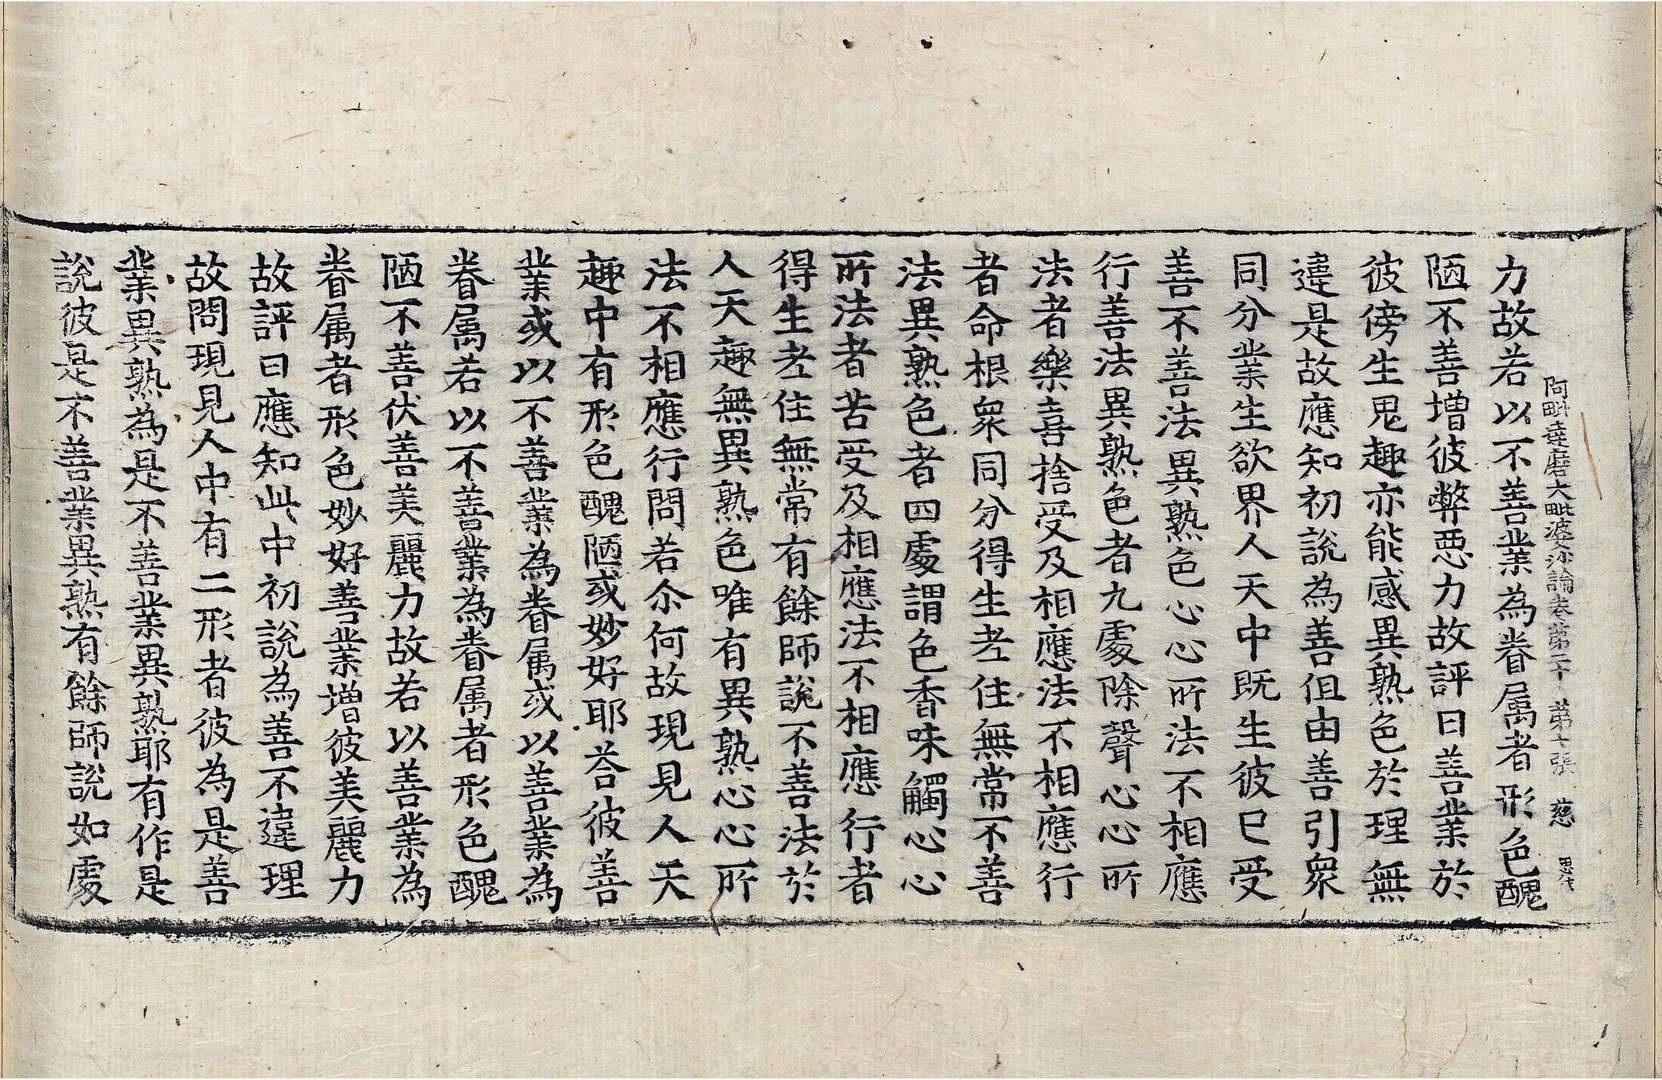 力故若以不善業為眷属者形色醜
阿毗達磨大毗婆沙論卷第二十 第十張 慈
陋不善增彼弊惡力故評曰善業於
彼傍生鬼趣亦能感異熟色於理無
違是故應知初說為善但由善引眾
同分業生欲界人天中既生彼已受
善不善法異熟色心心所法不相應
行善法異熟色者九處除聲心心所
法者樂喜捨受及相應法不相應行
者命根眾同分得生老住無常不善
法異熟色者四處謂色香味觸心心
所法者苦受及相應法不相應行者
得生老住無常有餘師說不善法於
人天趣無異熟色唯有異熟心心所
法不相應行問若尒何故現見人天
趣中有形色醜陋或妙好耶荅彼善
業或以不善業為眷属或以善業為
眷属若以不善業為眷属者形色醜
陋不善伏善美麗力故若以善業為
眷属者形色妙好善業增彼美麗力
故評曰應知此中初說為善不違理
故問現見人中有二形者彼為是善
業異熟為是不善業異熟耶有作是
說彼是不善業異熟有餘師說如處